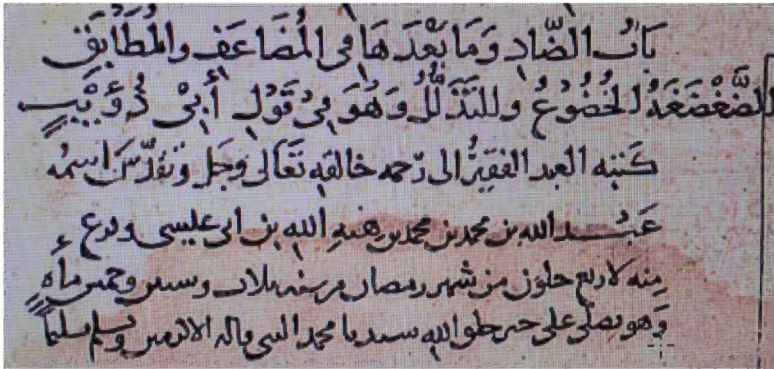 بَابُ الضَّادِ وَمَا بَعْدَهَا فِي الْمُضَاعَفِ وَالْمُطَابَقِ
الضَّعْضَعَةُ الخُضُوعُ وللتَذَلُّلُ وَهُوَ فِي قَوْلِ أَبِي ذُؤَيْبٍ
كَتبه العبد الفقيرُ الى رحمه خالقه تَعَالى وجَل وتقدّسَ اسمُه
عَبْد الله بن محمد بن محمد بن هبهِ الله بن ابى عليسى وفرع
مِنه لاربع خلون من شهر رمضان من سنه ثلاث وستين وخمس مأهٍ
وَهو يصلّى على خير خلق الله سيدنا محمد النبى واله الاكرمين ويسلم تسليمًا